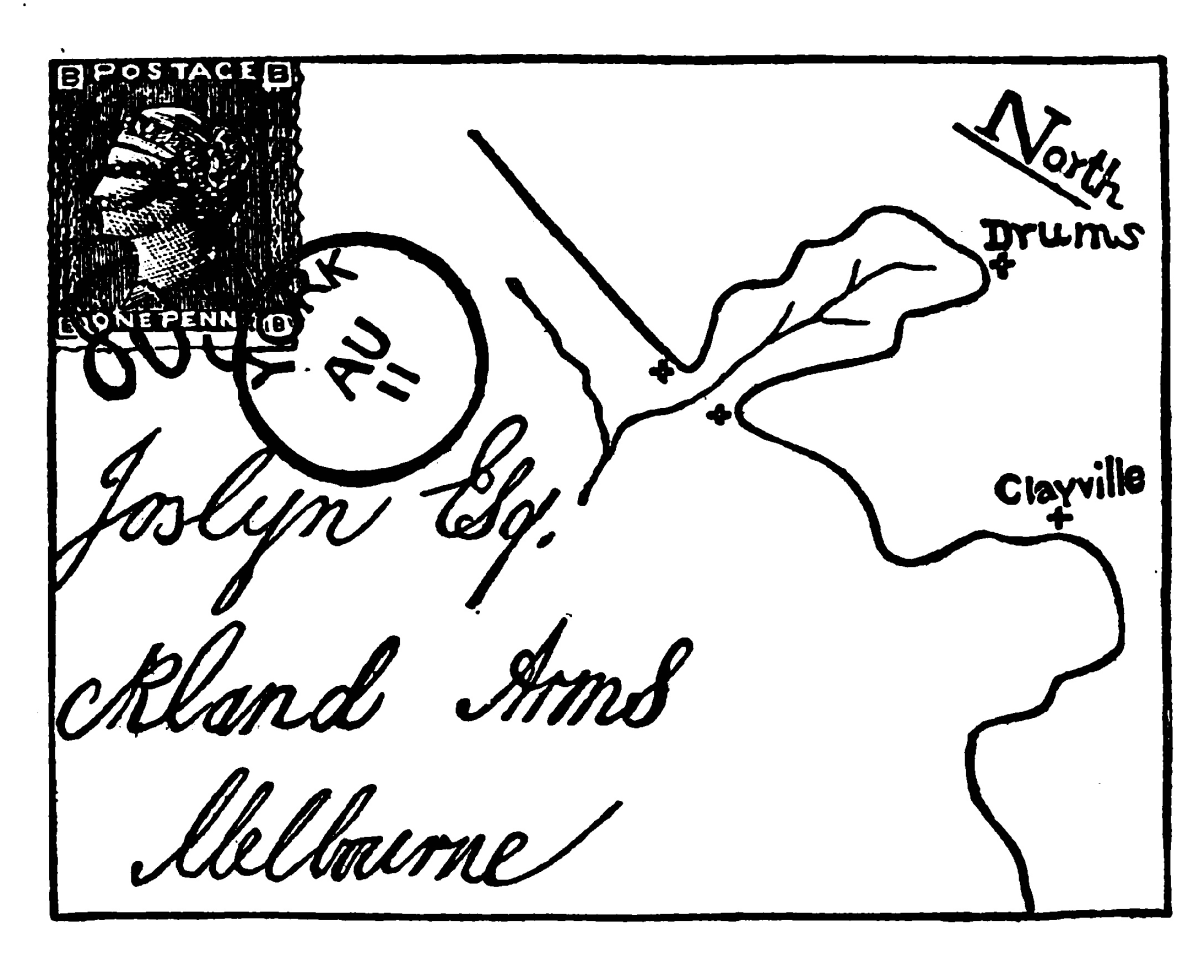 B POSTAGE B
ONE PENN
RK
AU
11
North
Drums
Clayville
Joslyn Esq.
ckland Arms
Melbourne